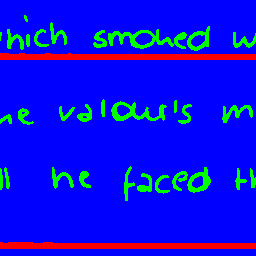 which smoked w
he valour's m
ll he faced th